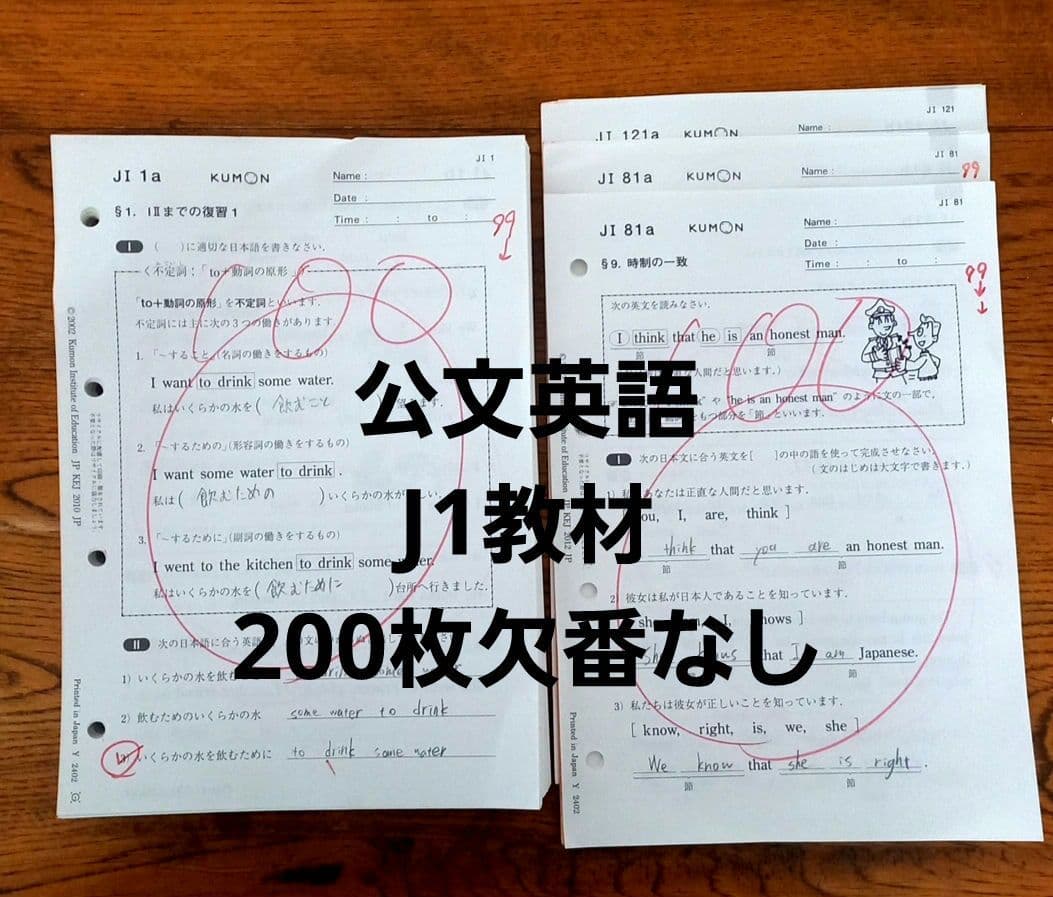 JI 1
JI 1a KUMON Name :
Date :
Time : : to :
§1. IⅡまでの復習1
99
I ( )に適切な日本語を書きなさい.
く不定詞:「to+動詞の原形」
「to+動詞の原形」を不定詞といいます.
不定詞には主に次の3つの働きがあります.
100
1. 「~すること」(名詞の働きをするもの)
I want to drink some water.
私はいくらかの水を( 飲むこと
2. 「~するための」(形容詞の働きをするもの)
I want some water to drink .
私は( 飲むための )いくらかの水が
3. 「~するために」(副詞の働きをするもの)
I went to the kitchen to drink some water.
私はいくらかの水を( 飲むために )台所へ行きました.
II 次の日本語に合う英語
1) いくらかの水を飲む
2) 飲むためのいくらかの水 some water to drink
3) いくらかの水を飲むために to drink some water
© 2002 Kumon Institute of Education JP KEJ 2010 JP
Printed in Japan Y 2402
JI 121
JI 121a KUMON Name :
JI 81
JI 81a KUMON Name :
99
JI 81
JI 81a KUMON Name :
Date :
Time : : to :
§9. 時制の一致
99
次の英文を読みなさい.
I think that he is an honest man.
節 節
人間だと思います.)
100
"he is an honest man" のように文の一部で,
もつ部分を「節」といいます.
I 次の日本文に合う英文を[ ]の中の語を使って完成させなさい.
(文のはじめは大文字で書きます.)
1) あなたは正直な人間だと思います.
you, I, are, think ]
think that you are an honest man.
節 節
2) 彼女は私が日本人であることを知っています.
I, knows ]
She knows that I am Japanese.
節
3) 私たちは彼女が正しいことを知っています.
[ know, right, is, we, she ]
We know that she is right .
節 節
of Education JP KEJ 2012 JP
Printed in Japan Y 2402
公文英語
J1教材
200枚欠番なし